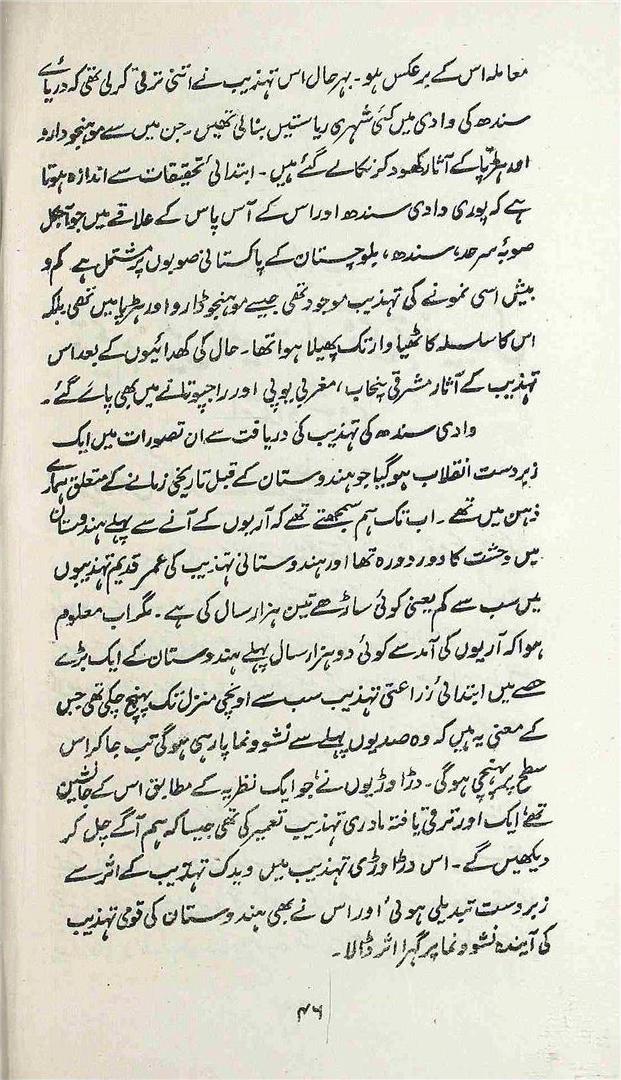 معاملہ اس کے برعکس ہو۔ بہرحال اس تہذیب نے اتنی ترقی کرلی تھی کہ دریائے
سندھ کی وادی میں کئی شہری ریاستیں بنالی تھیں۔ جن میں سے موہنجودارو
اور ہڑپا کے آثار کھود کر نکالے گئے ہیں۔ ابتدائی تحقیقات سے اندازہ ہوتا
ہے کہ پوری وادی سندھ اور اس کے آس پاس کے علاقے میں جو آجکل
صوبۂ سرحد، سندھ، بلوچستان کے پاکستانی صوبوں پر مشتمل ہے کم و
بیش اسی نمونے کی تہذیب موجود تھی جیسے موہنجوڈارو اور ہڑپا میں تھی بلکہ
اس کا سلسلہ کاٹھیاوار تک پھیلا ہوا تھا۔ حال کی کھدائیوں کے بعد اس
تہذیب کے آثار مشرقی پنجاب، مغربی یوپی اور راجپوتانے میں بھی پائے گئے۔
وادی سندھ کی تہذیب کی دریافت سے ان تصورات میں ایک
زبردست انقلاب ہوگیا جو ہندوستان کے قبل تاریخی زمانے کے متعلق ہمارے
ذہن میں تھے۔ اب تک ہم سمجھتے تھے کہ آریوں کے آنے سے پہلے ہندوستان
میں وحشت کا دور دورہ تھا اور ہندوستانی تہذیب کی عمر قدیم تہذیبوں
میں سب سے کم یعنی کوئی ساڑھے تین ہزار سال کی ہے۔ مگر اب معلوم
ہوا کہ آریوں کی آمد سے کوئی دو ہزار سال پہلے ہندوستان کے ایک بڑے
حصے میں ابتدائی زراعتی تہذیب سب سے اونچی منزل تک پہنچ چکی تھی جس
کے معنی یہ ہیں کہ وہ صدیوں پہلے سے نشوونما پارہی ہوگی تب جاکر اس
سطح پر پہنچی ہوگی۔ دڑاوڑیوں نے جو ایک نظریہ کے مطابق اس کے جانشین
تھے ایک اور ترقی یافتہ مادری تہذیب تعمیر کی تھی جیسا کہ ہم آگے چل کر
دیکھیں گے۔ اس دڑاوڑی تہذیب میں ویدک تہذیب کے اثر سے
زبردست تبدیلی ہوئی اور اس نے بھی ہندوستان کی قومی تہذیب
کی آیندہ نشوونما پر گہرا اثر ڈالا۔
۴۶